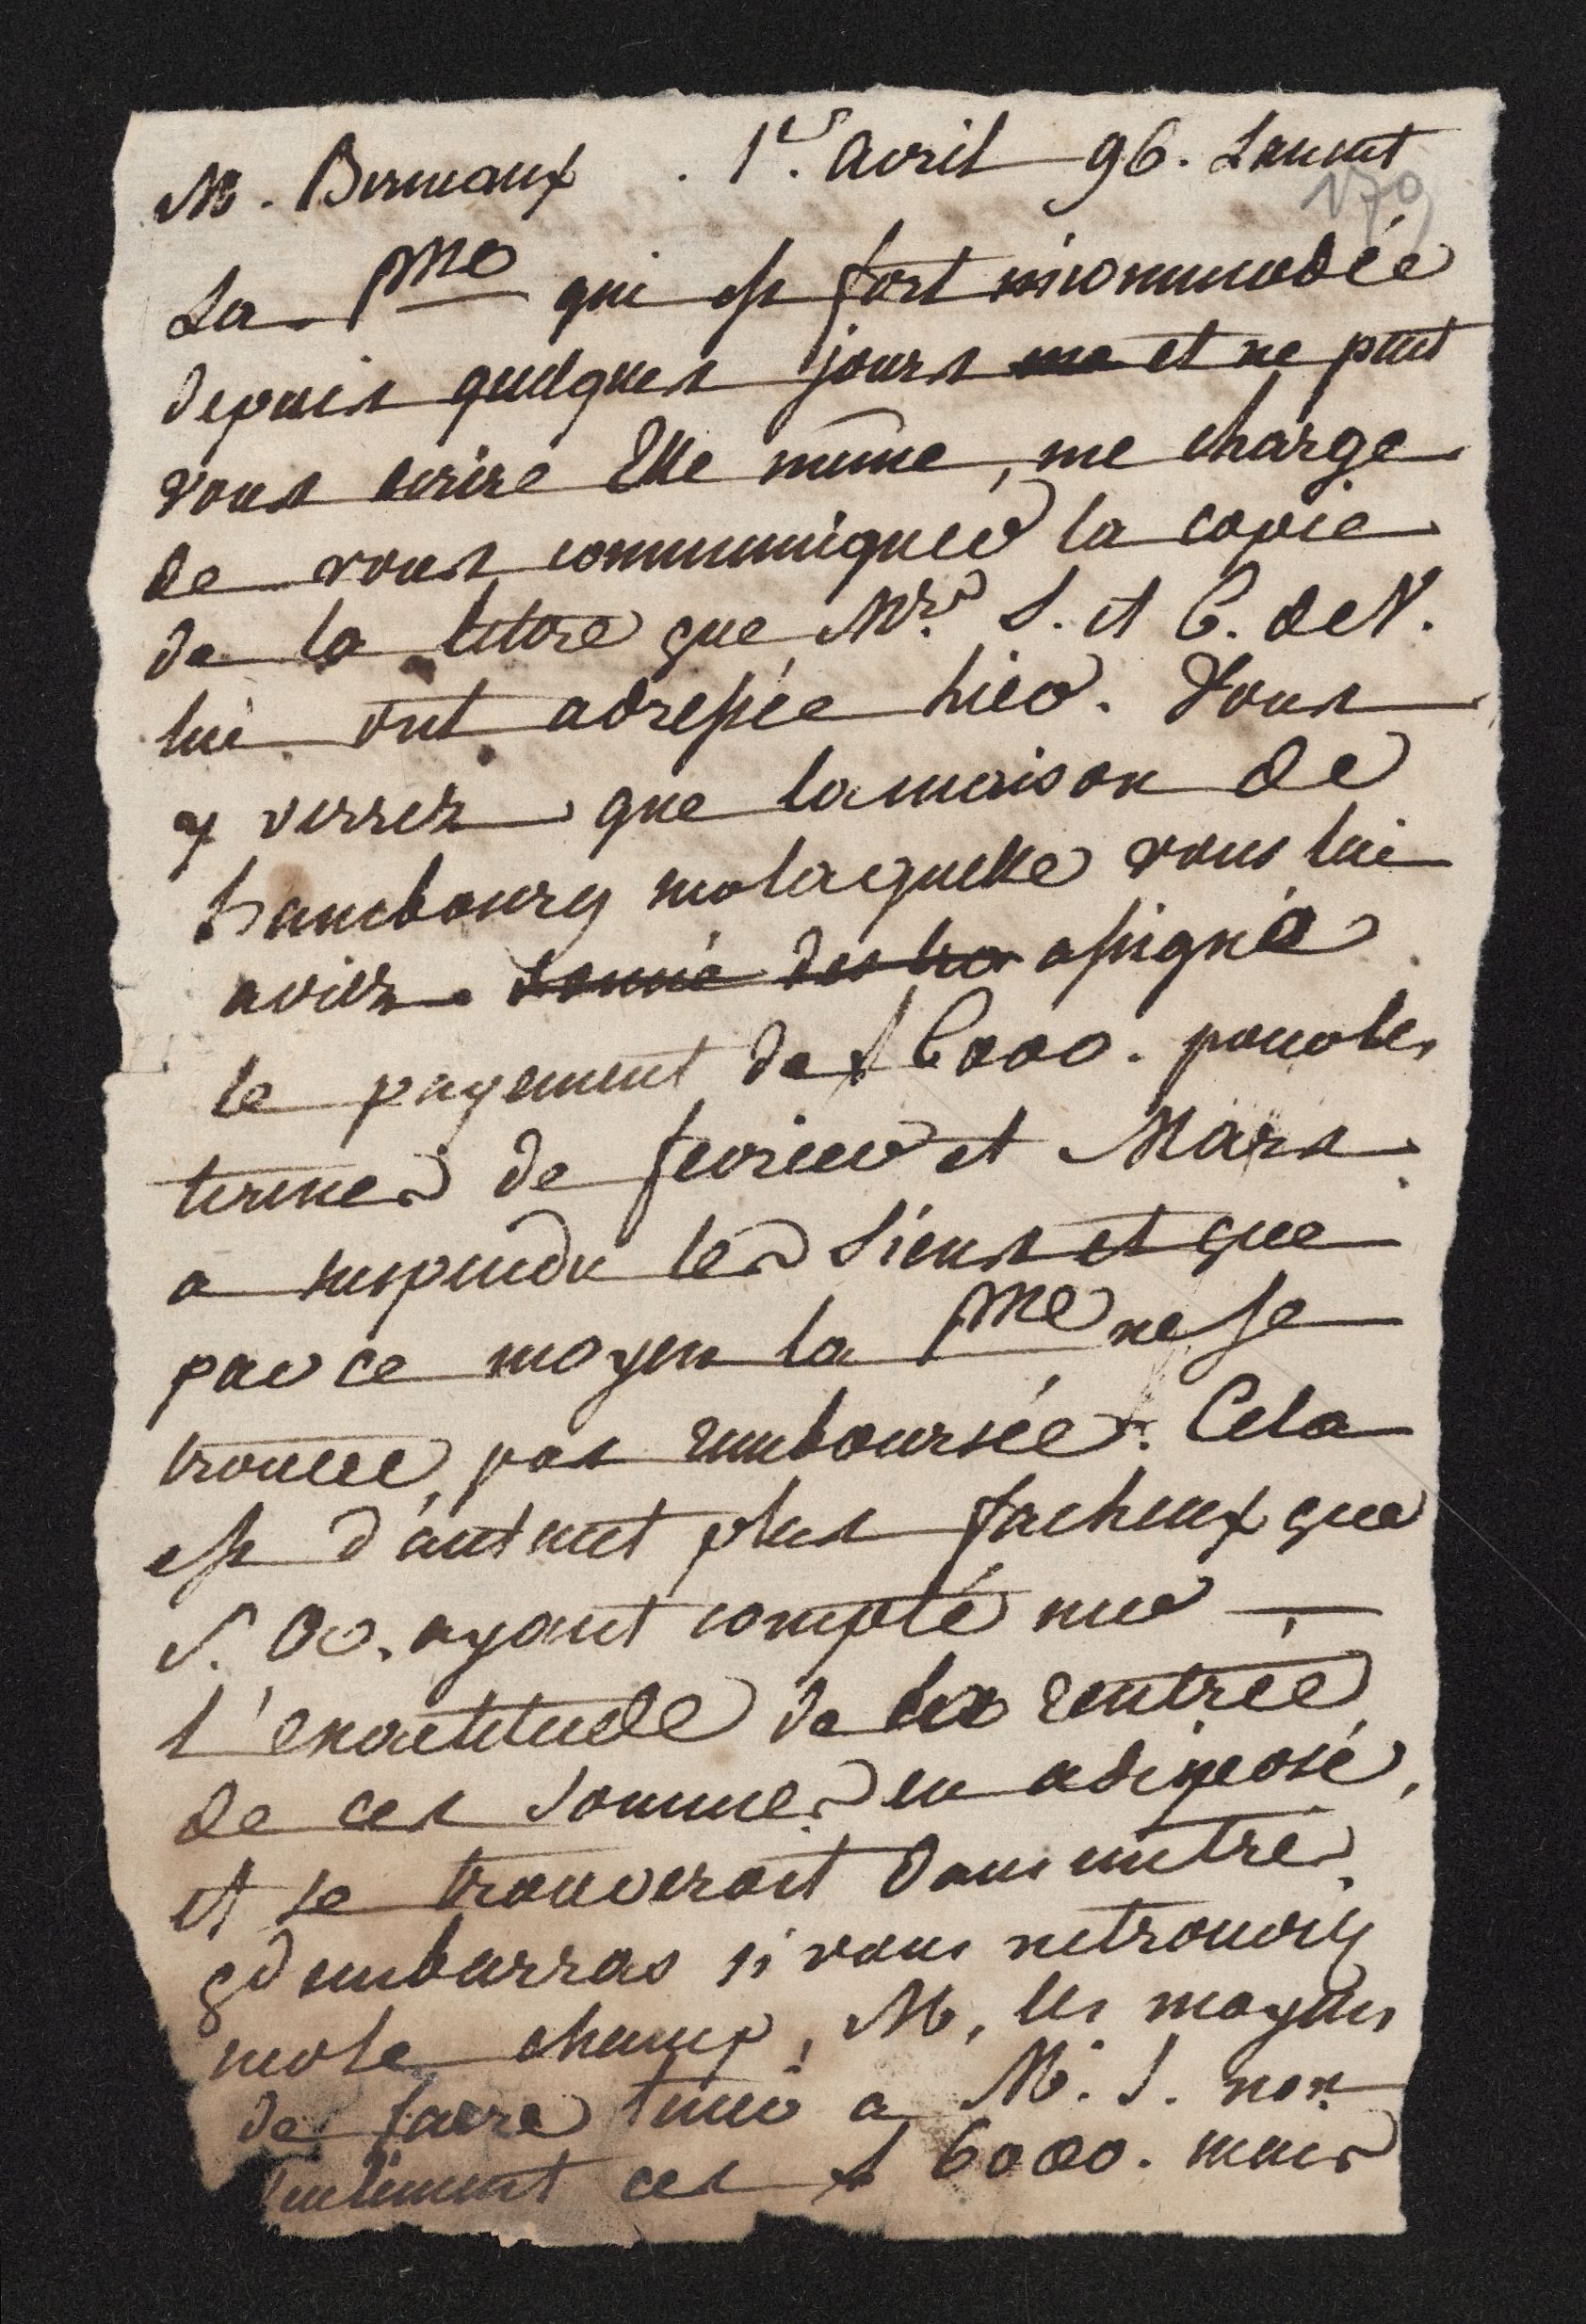 M. Bermaux . 1er. avril 96. Lanent
179
La Pme qui est fort incommodée
depuis quelques jours me et ne peut
vous ecrire Elle même, me charge
de vous communiquer la copie
de la lettre que Mrs. S. et C. de N.
lui ont adressée hier. Vous
y verrez que la maison de
hambourg sur laquelle vous lui
aviez donné des tra assigné
le payement de f 6000. pour les
termes de fevrier et Mars
a suspendu les Siens et que
par ce moyen la Pme ne se
trouve pas remboursée. Cela
est d'autant plus facheux que
S. A. ayant compté sur
l'exactitude de la rentrée
de ces Sommes en a disposé,
et se trouveroit dans un tres
gd embarras si vous ne trouviez
sur le champ, M, les moyens
de faire tenir a M. S. non
seulement ces f 6000. mais